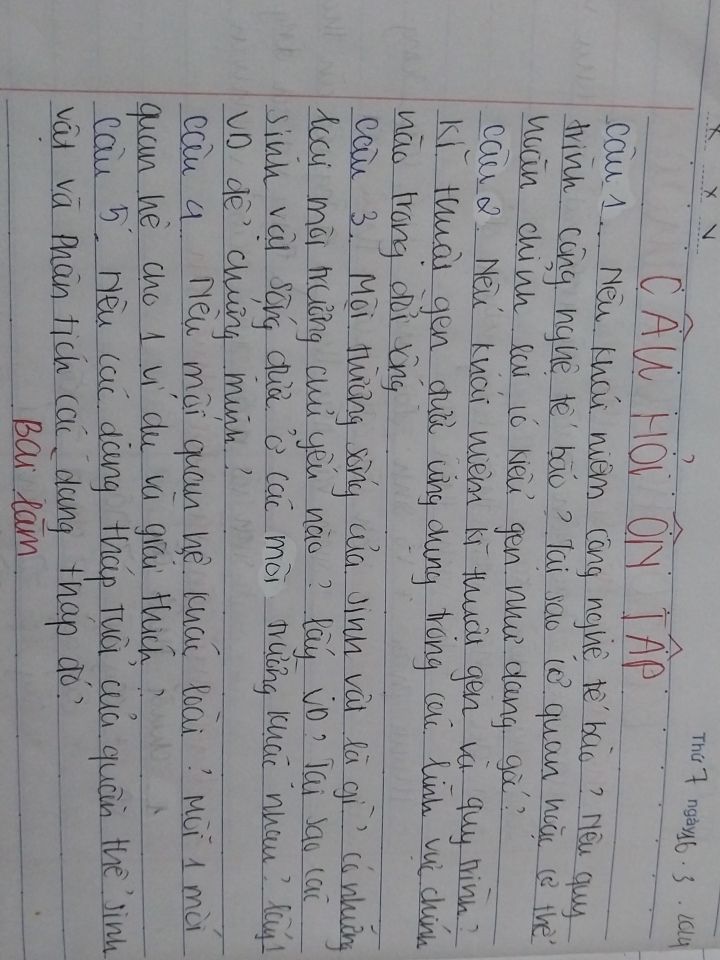 Thứ 7 ngày 16.3.2024
CÂU HỎI ÔN TẬP
Câu 1. Nêu khái niệm công nghệ tế bào? Nêu quy
trình công nghệ tế bào? Tại sao cơ quan hoặc cơ thể
hoàn chỉnh lại có kiểu gen như dạng gốc?
Câu 2. Nêu khái niệm kĩ thuật gen và quy trình?
Kĩ thuật gen được ứng dụng trong các lĩnh vực chính
nào trong đời sống
Câu 3. Môi trường sống của sinh vật là gì? có những
loại môi trường chủ yếu nào? lấy VD? Tại sao các
sinh vật sống được ở các môi trường khác nhau? lấy 1
VD để chứng minh?
Câu 4 Nêu mối quan hệ khác loài? Mỗi 1 mối
quan hệ cho 1 ví dụ và giải thích?
Câu 5. Nêu các dạng tháp tuổi của quần thể sinh
vật và Phân tích các dạng tháp đó?
Bài làm